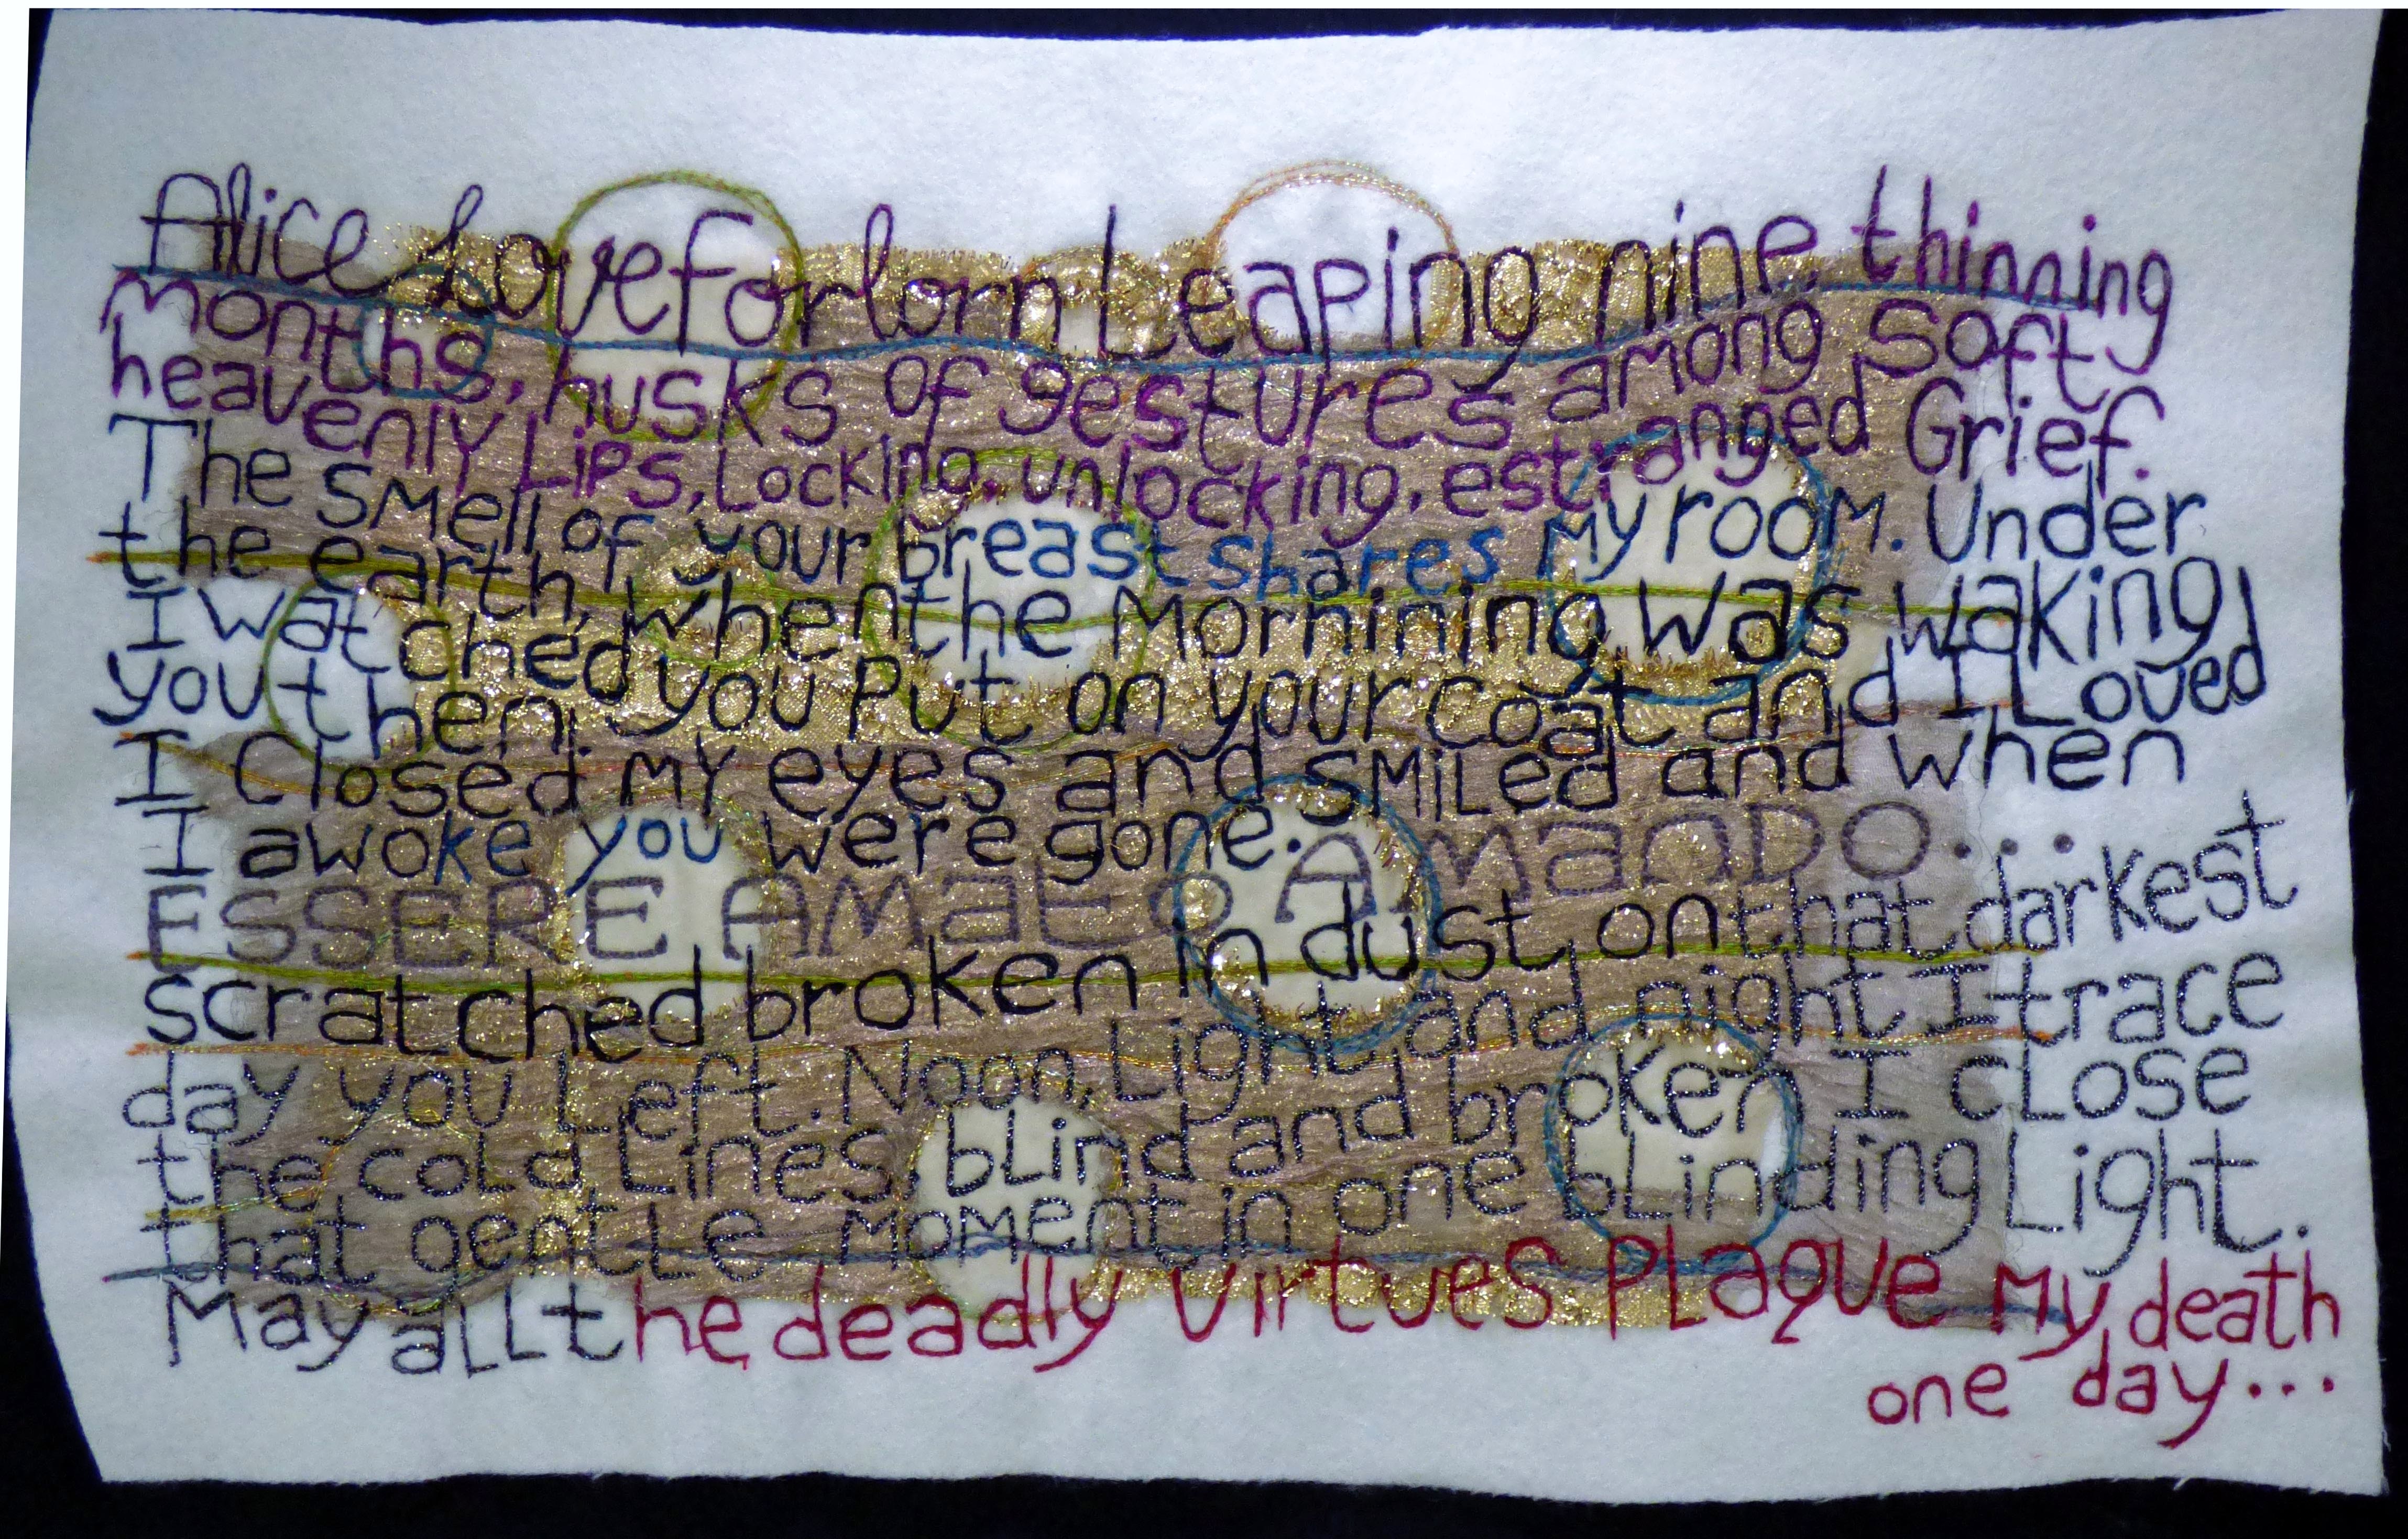 Alice Loveforlorn Leaping nine, thinning
months, husks of gestures among soft
heavenly Lips, Locking, unlocking, estranged Grief.
The smell of your breast shares My room. Under
the earth, when the Mornining was waking
I watched you Put on your coat and I Loved
you then.
I Closed My eyes and SMiLed and when
I awoke you were gone.
ESSERE AMato AMANDO...
scratched broken in dust on that darkest
day you Left. Noon, Light, and night I trace
the cold Lines, bLind and broken I cLose
that gentLe MoMent in one bLinding Light.
May aLL the deadly virtues PLaque My death
one day...